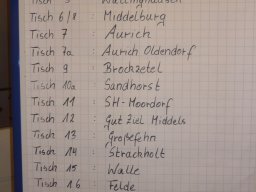 Tisch 5 : Wallinghausen
Tisch 6/8 : Middelburg
Tisch 7 : Aurich
Tisch 7a : Aurich Oldendorf
Tisch 9 : Brockzetel
Tisch 10a : Sandhorst
Tisch 11 : SH-Moordorf
Tisch 12 : Gut Ziel Middels
Tisch 13 : Großefehn
Tisch 14 : Strackholt
Tisch 15 : Walle
Tisch 16 : Felde